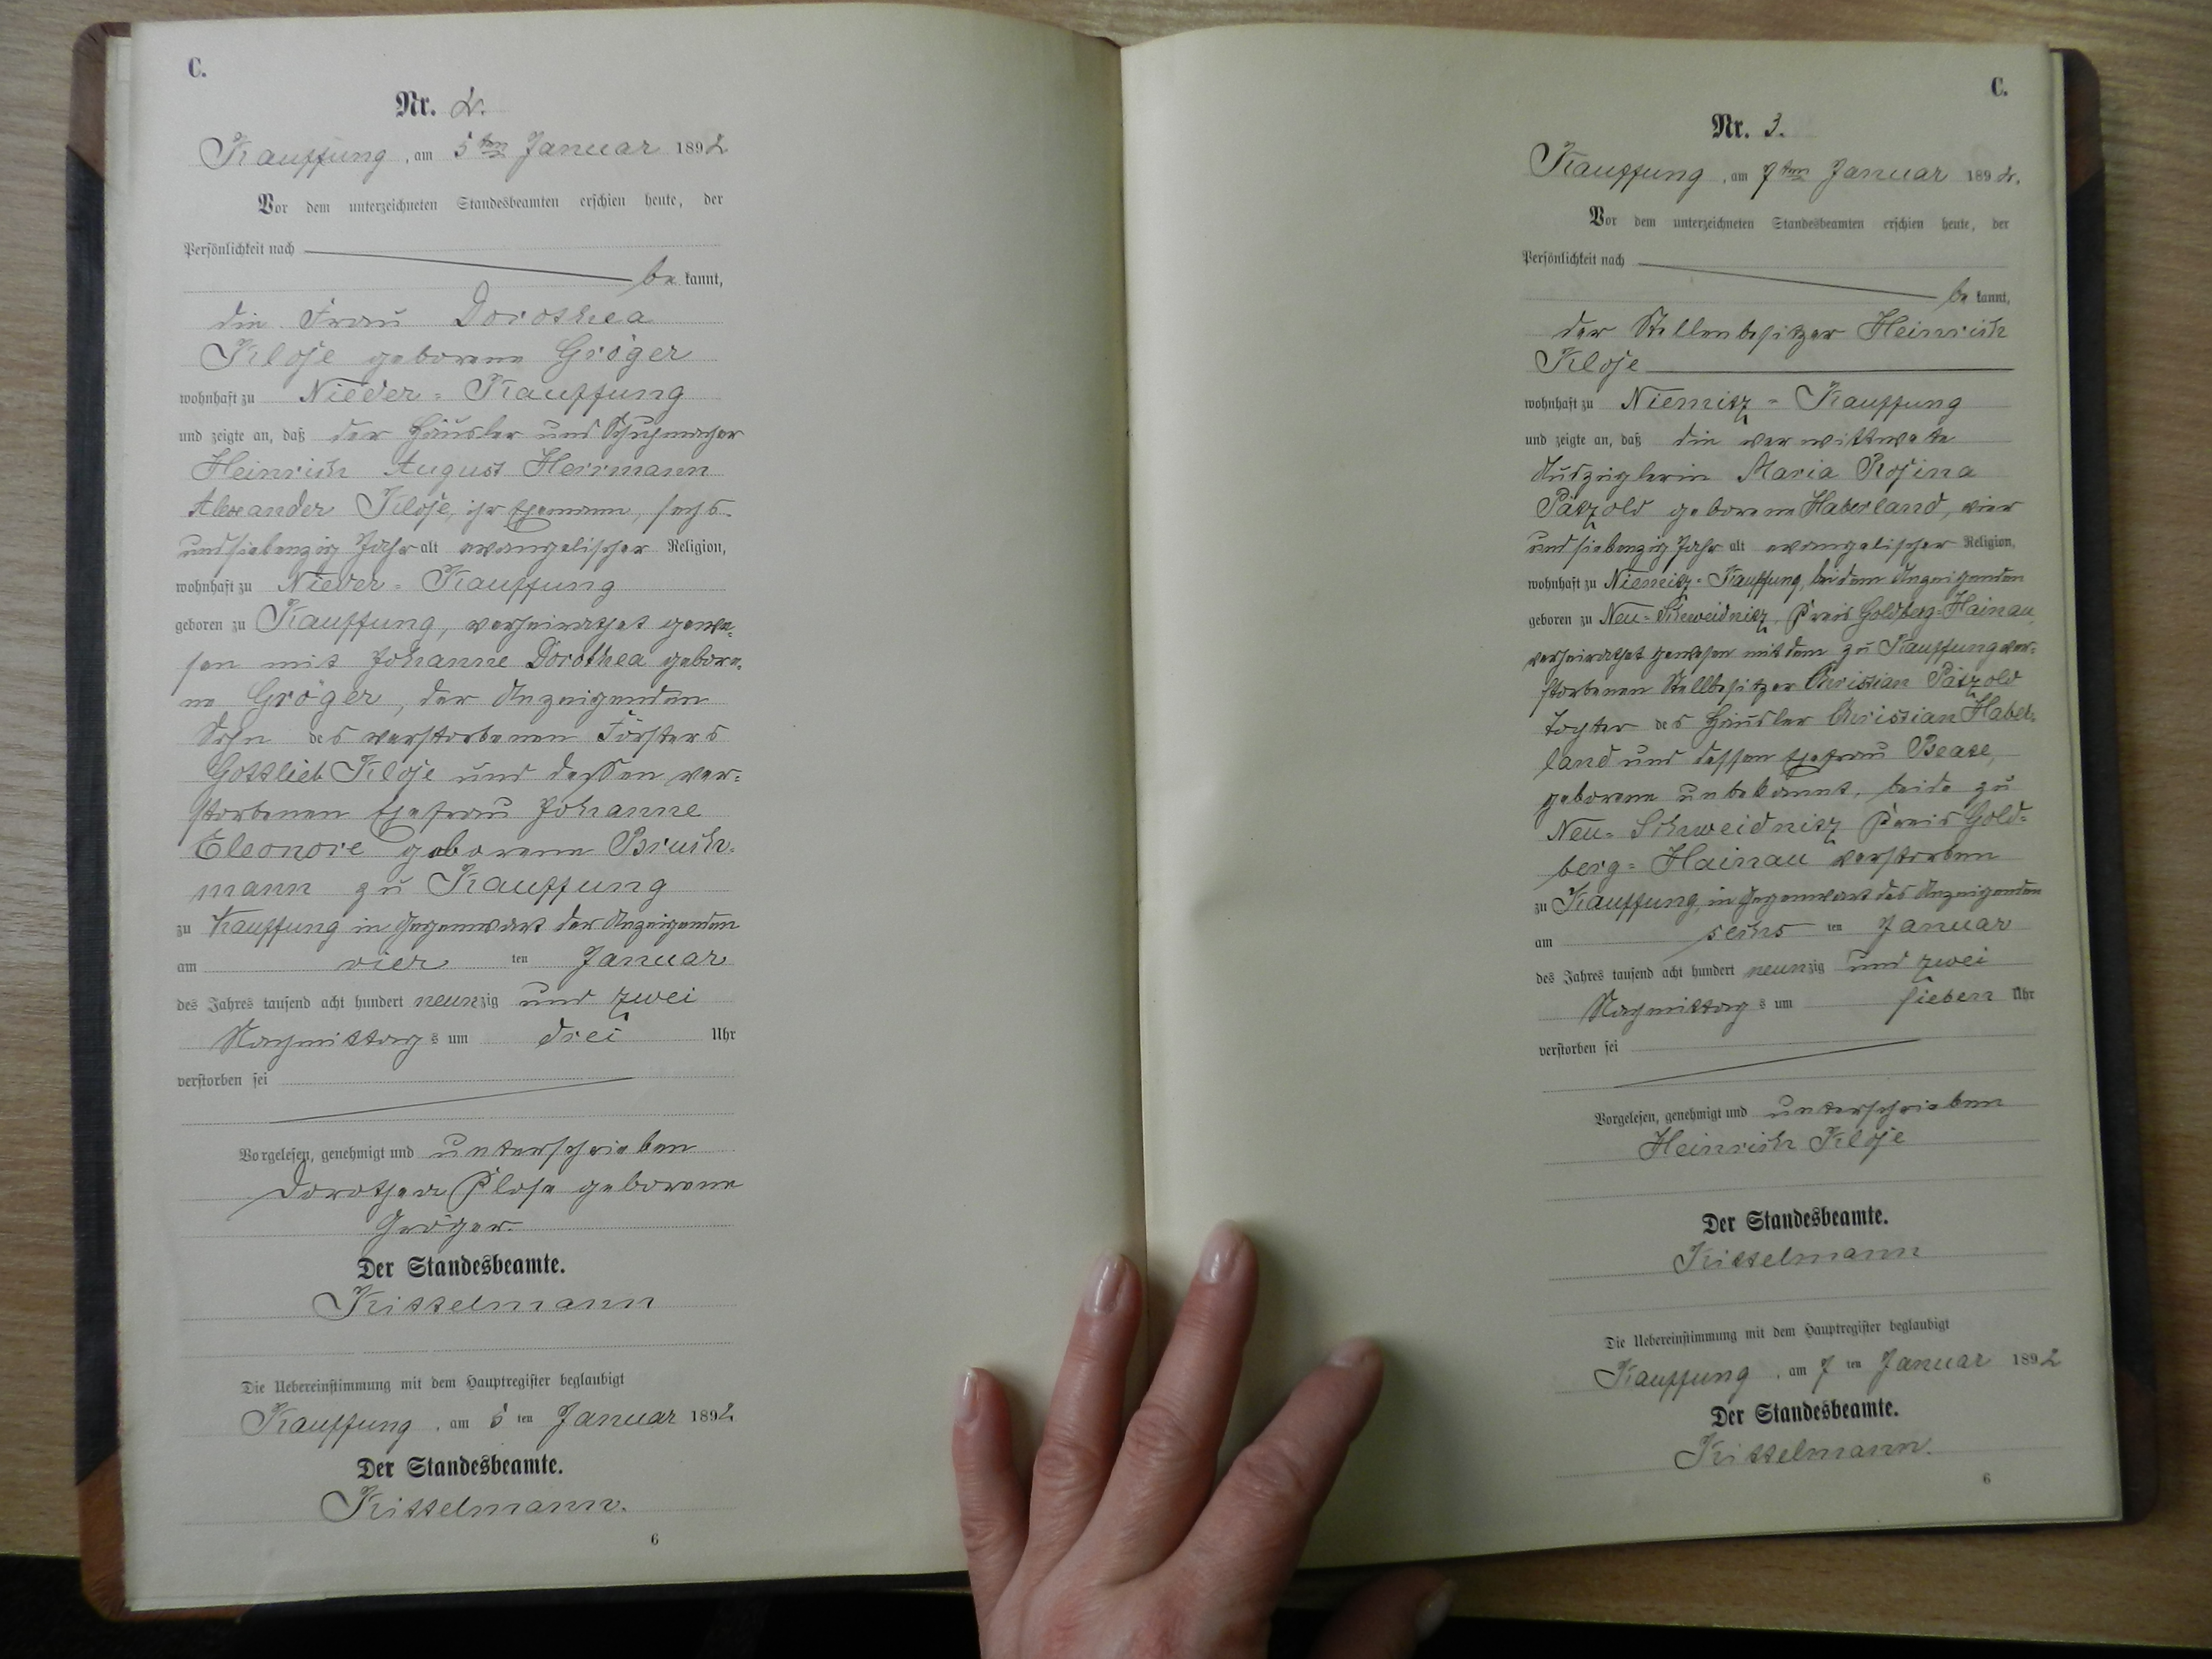 C.
Nr. 2.
Kauffung, am 5ten Januar 1892
Vor dem unterzeichneten Standesbeamten erschien heute, der
Persönlichkeit nach
be kannt,
die Frau Dorothea
Klose geborene Gröger
wohnhaft zu Nieder-Kauffung
und zeigte an, daß der Häusler und Schuhmacher
Heinrich August Herrmann
Alexander Klose, ihr Ehemann, sechs-
undsiebenzig Jahr alt evangelischer Religion,
wohnhaft zu Nieder-Kauffung
geboren zu Kauffung, verheirathet gewe-
sen mit Johanne Dorothea gebore-
ne Gröger, der Anzeigenden
Sohn des verstorbenen Försters
Gottlieb Klose und dessen ver-
storbenen Ehefrau Johanne
Eleonore geborene Bruch-
mann zu Kauffung
zu Kauffung in Gegenwart der Anzeigenden
am vier ten Januar
des Jahres tausend acht hundert neunzig und zwei
Nachmittags um drei Uhr
verstorben sei
Vorgelesen, genehmigt und unterschrieben
Dorothea Klose geborene
Gröger.
Der Standesbeamte.
Kittelmann
Die Uebereinstimmung mit dem Hauptregister beglaubigt
Kauffung, am 5 ten Januar 1892
Der Standesbeamte.
Kittelmann.
6
C.
Nr. 3.
Kauffung, am 7ten Januar 1892.
Vor dem unterzeichneten Standesbeamten erschien heute, der
Persönlichkeit nach
be kannt,
der Stellenbesitzer Heinrich
Klose
wohnhaft zu Niemitz-Kauffung
und zeigte an, daß die verwittwete
Auszüglerin Maria Rosina
Pätzold geborene Haberland, vier
undsiebenzig Jahr alt evangelischer Religion,
wohnhaft zu Niemitz-Kauffung, bei dem Anzeigenden
geboren zu Neu-Schweidnitz, Kreis Goldberg-Hainau,
verheirathet gewesen mit dem zu Kauffung ver-
storbenen Stellbesitzer Christian Pätzold
Tochter des Häusler Christian Haber-
land und dessen Ehefrau Beate,
geborene unbekannt, beide zu
Neu-Schweidnitz Kreis Gold-
berg-Hainau verstorben
zu Kauffung, in Gegenwart des Anzeigenden
am sechs ten Januar
des Jahres tausend acht hundert neunzig und zwei
Nachmittags um sieben Uhr
verstorben sei
Vorgelesen, genehmigt und unterschrieben
Heinrich Klose
Der Standesbeamte.
Kittelmann
Die Uebereinstimmung mit dem Hauptregister beglaubigt
Kauffung, am 7 ten Januar 1892
Der Standesbeamte.
Kittelmann.
6